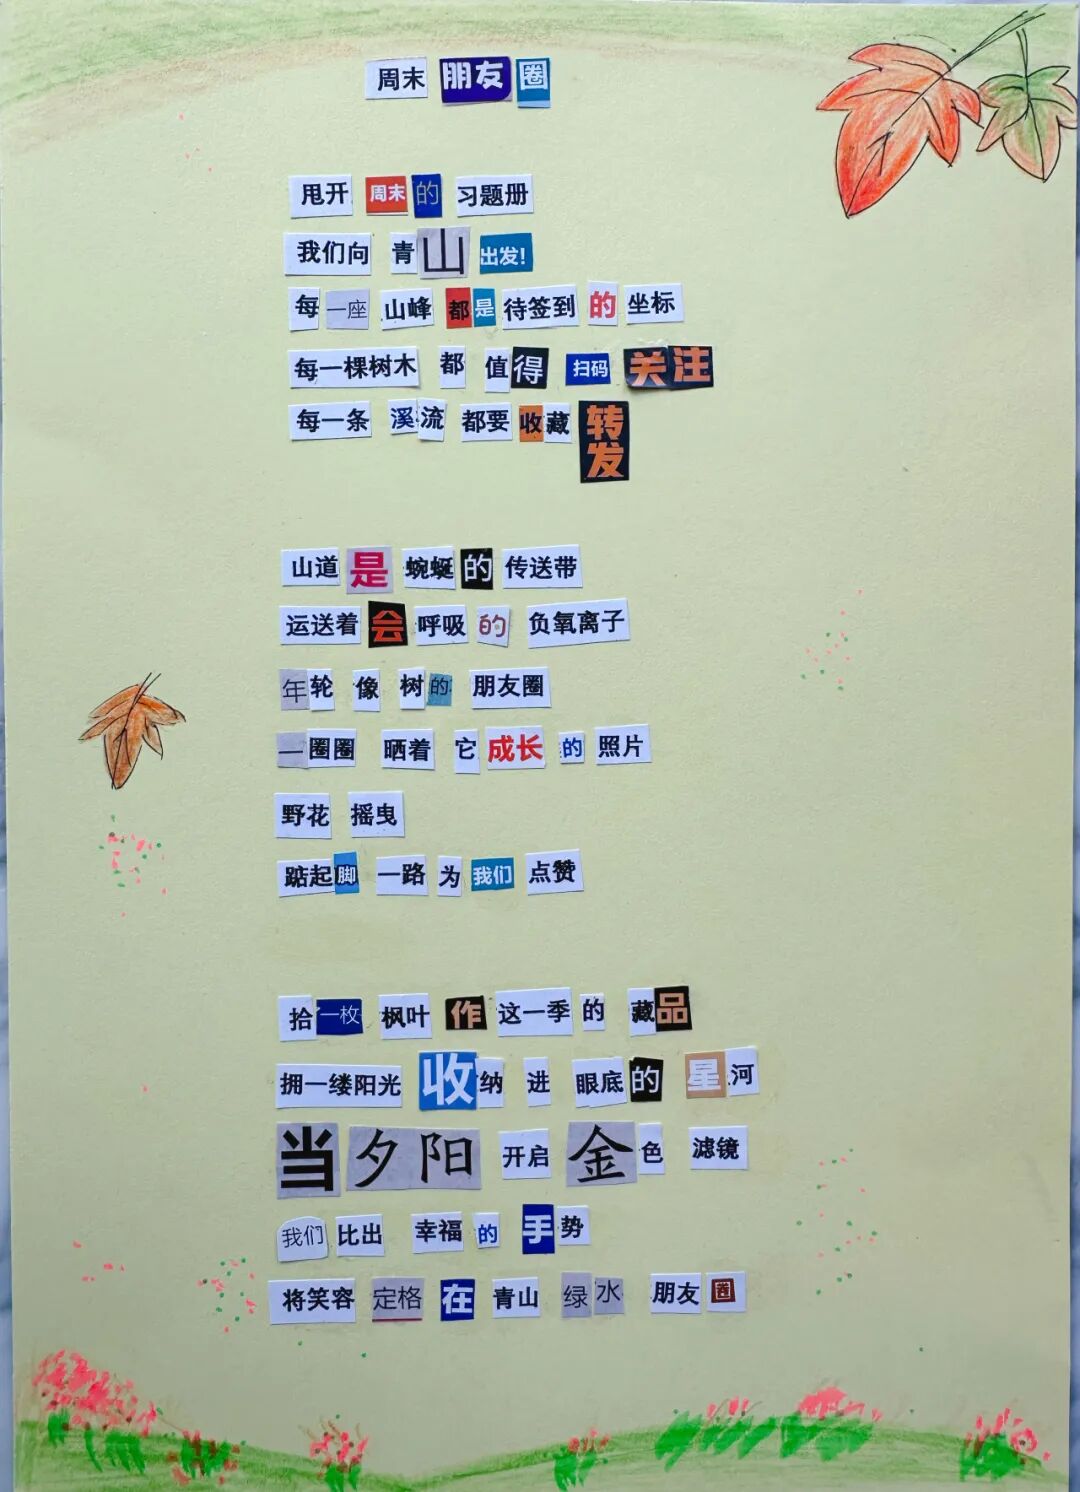 周末朋友圈
甩开周末的习题册
我们向青山出发!
每一座山峰都是待签到的坐标
每一棵树木都值得扫码关注
每一条溪流都要收藏转发
山道是蜿蜒的传送带
运送着会呼吸的负氧离子
年轮像树的朋友圈
一圈圈晒着它成长的照片
野花摇曳
踮起脚一路为我们点赞
拾一枚枫叶作这一季的藏品
拥一缕阳光收纳进眼底的星河
当夕阳开启金色滤镜
我们比出幸福的手势
将笑容定格在青山绿水朋友圈